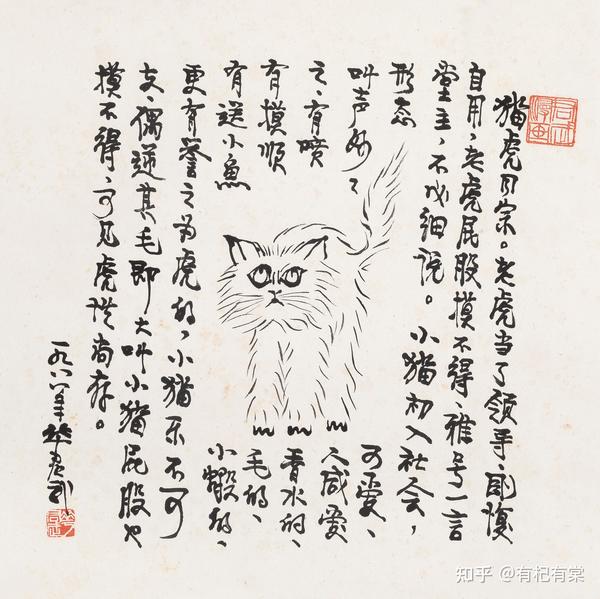 君武漫画
猫虎同宗。老虎当了领导、刚愎
自用,老虎屁股摸不得、雅号一言
堂主,不必细说。小猫初入社会,
形态可爱、
叫声妙々人咸爱
之、有喷香水的、
有摸顺毛的、
有送小魚小蝦的、
更有誉之为虎的,小猫乐不可
支、偶逆其毛即大叫小猫屁股也
摸不得、可见虎性尚存。
一九八八年华君武
知乎 @有杞有棠